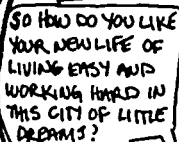 SO HOW DO YOU LIKE
YOUR NEW LIFE OF
LIVING EASY AND
WORKING HARD IN
THIS CITY OF LITTLE
DREAMS?